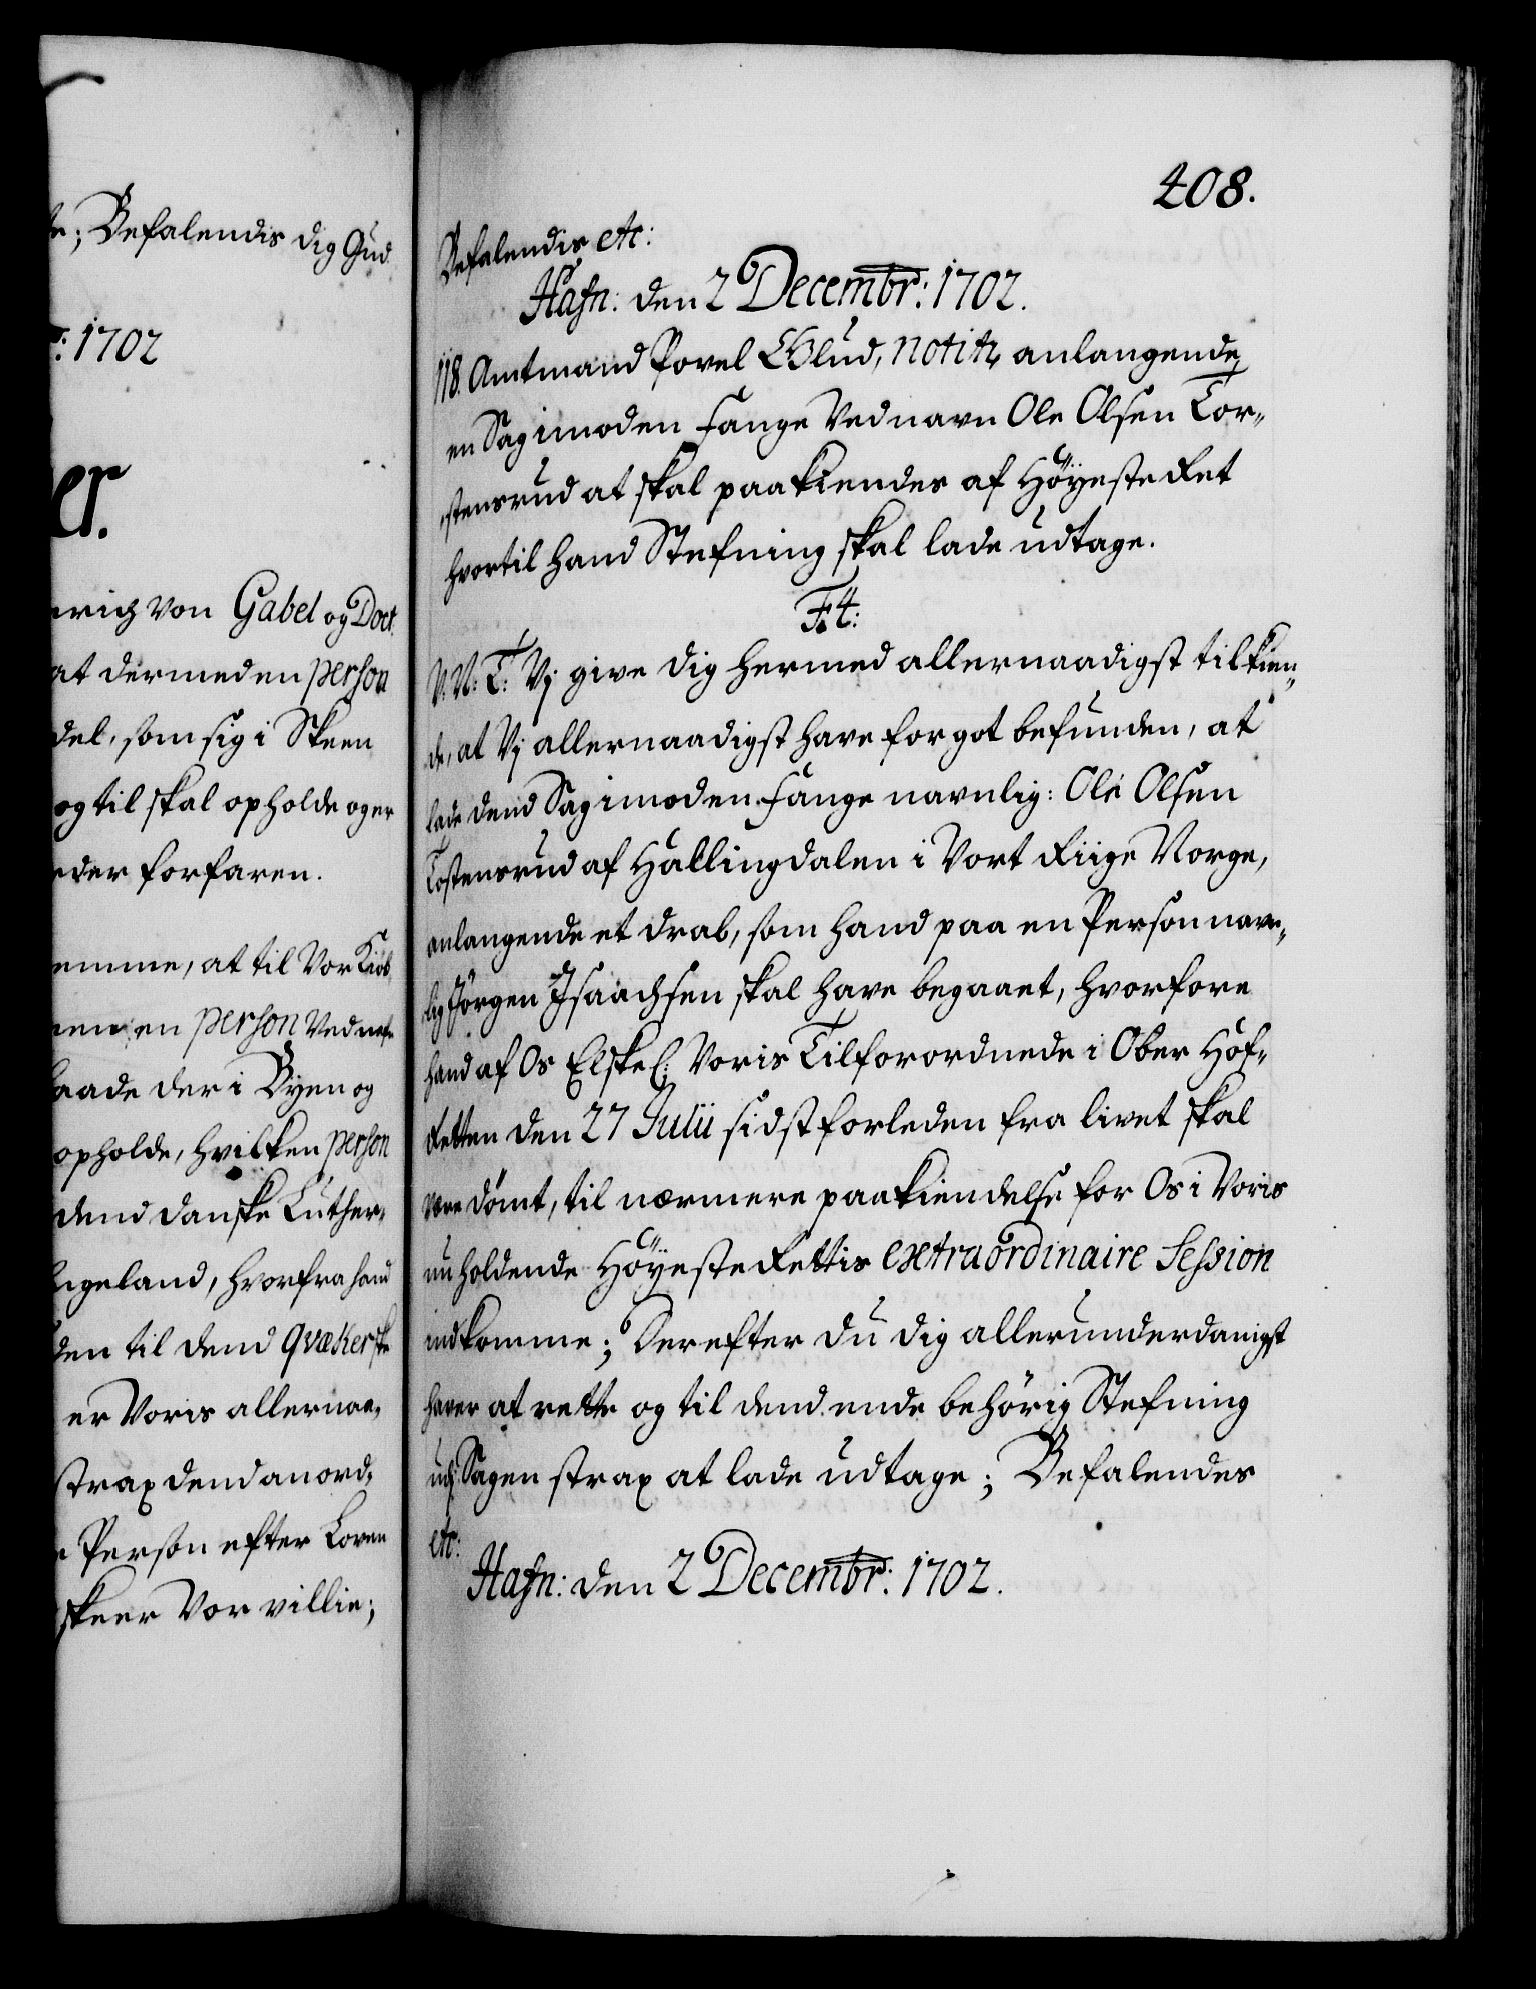 te; Befalendis dig Gud
: 1702
er.
erich von Gabel og Doct.
at dermed en person
del, som sig i Skeen
og til skal opholde og er
eder forfaren.
emme, at til Vor Kiøb
en person Ved nafn
baade der i Byen og
opholde, hvilken person
dend danske Luther-
Engeland, hvorfra hand
den til dend Qvækerske
er Voris allernaa-
strax dend anord-
e Person efter Loven
skeer Vor villie;
408.
Befalendis etc:
Hafn: den 2 Decembr: 1702.
118. Amtmand Povel Glud, notitz, anlangende
en Sagimoden Fange Ved navn Ole Olsen Tor-
stensrud at skal paakiendes af Höyeste Ret
hvortil hand Stefning skal lade udtage.
F. 4:
V. V: T: Vj give dig hermed allernaadigst tilkien-
de, at Vj allernaadigst have for got befunden, at
lade dend Sag imoden Fange navnlig: Ole Olsen
Tostensrud af Hallingdalen i Vort Riige Norge,
anlangende et drab, som hand paa en Person navn-
lig Jörgen Isaachsen skal have begaaet, hvorfore
hand af Os Elskel: Voris Tilforordnede i Ober Hof-
Retten den 27 Julii sidstforleden fra livet skal
være dömt, til nærmere paakiendelse for Os i Voris
nu holdende Höyeste Rettis extraordinaire Session
indkomme; Derefter du dig allerunderdanigst
haver at rette og til dend ende behörig Stefning
udj Sagen strax at lade udtage; Befalendes
etc:
Hafn: den 2 Decembr: 1702.